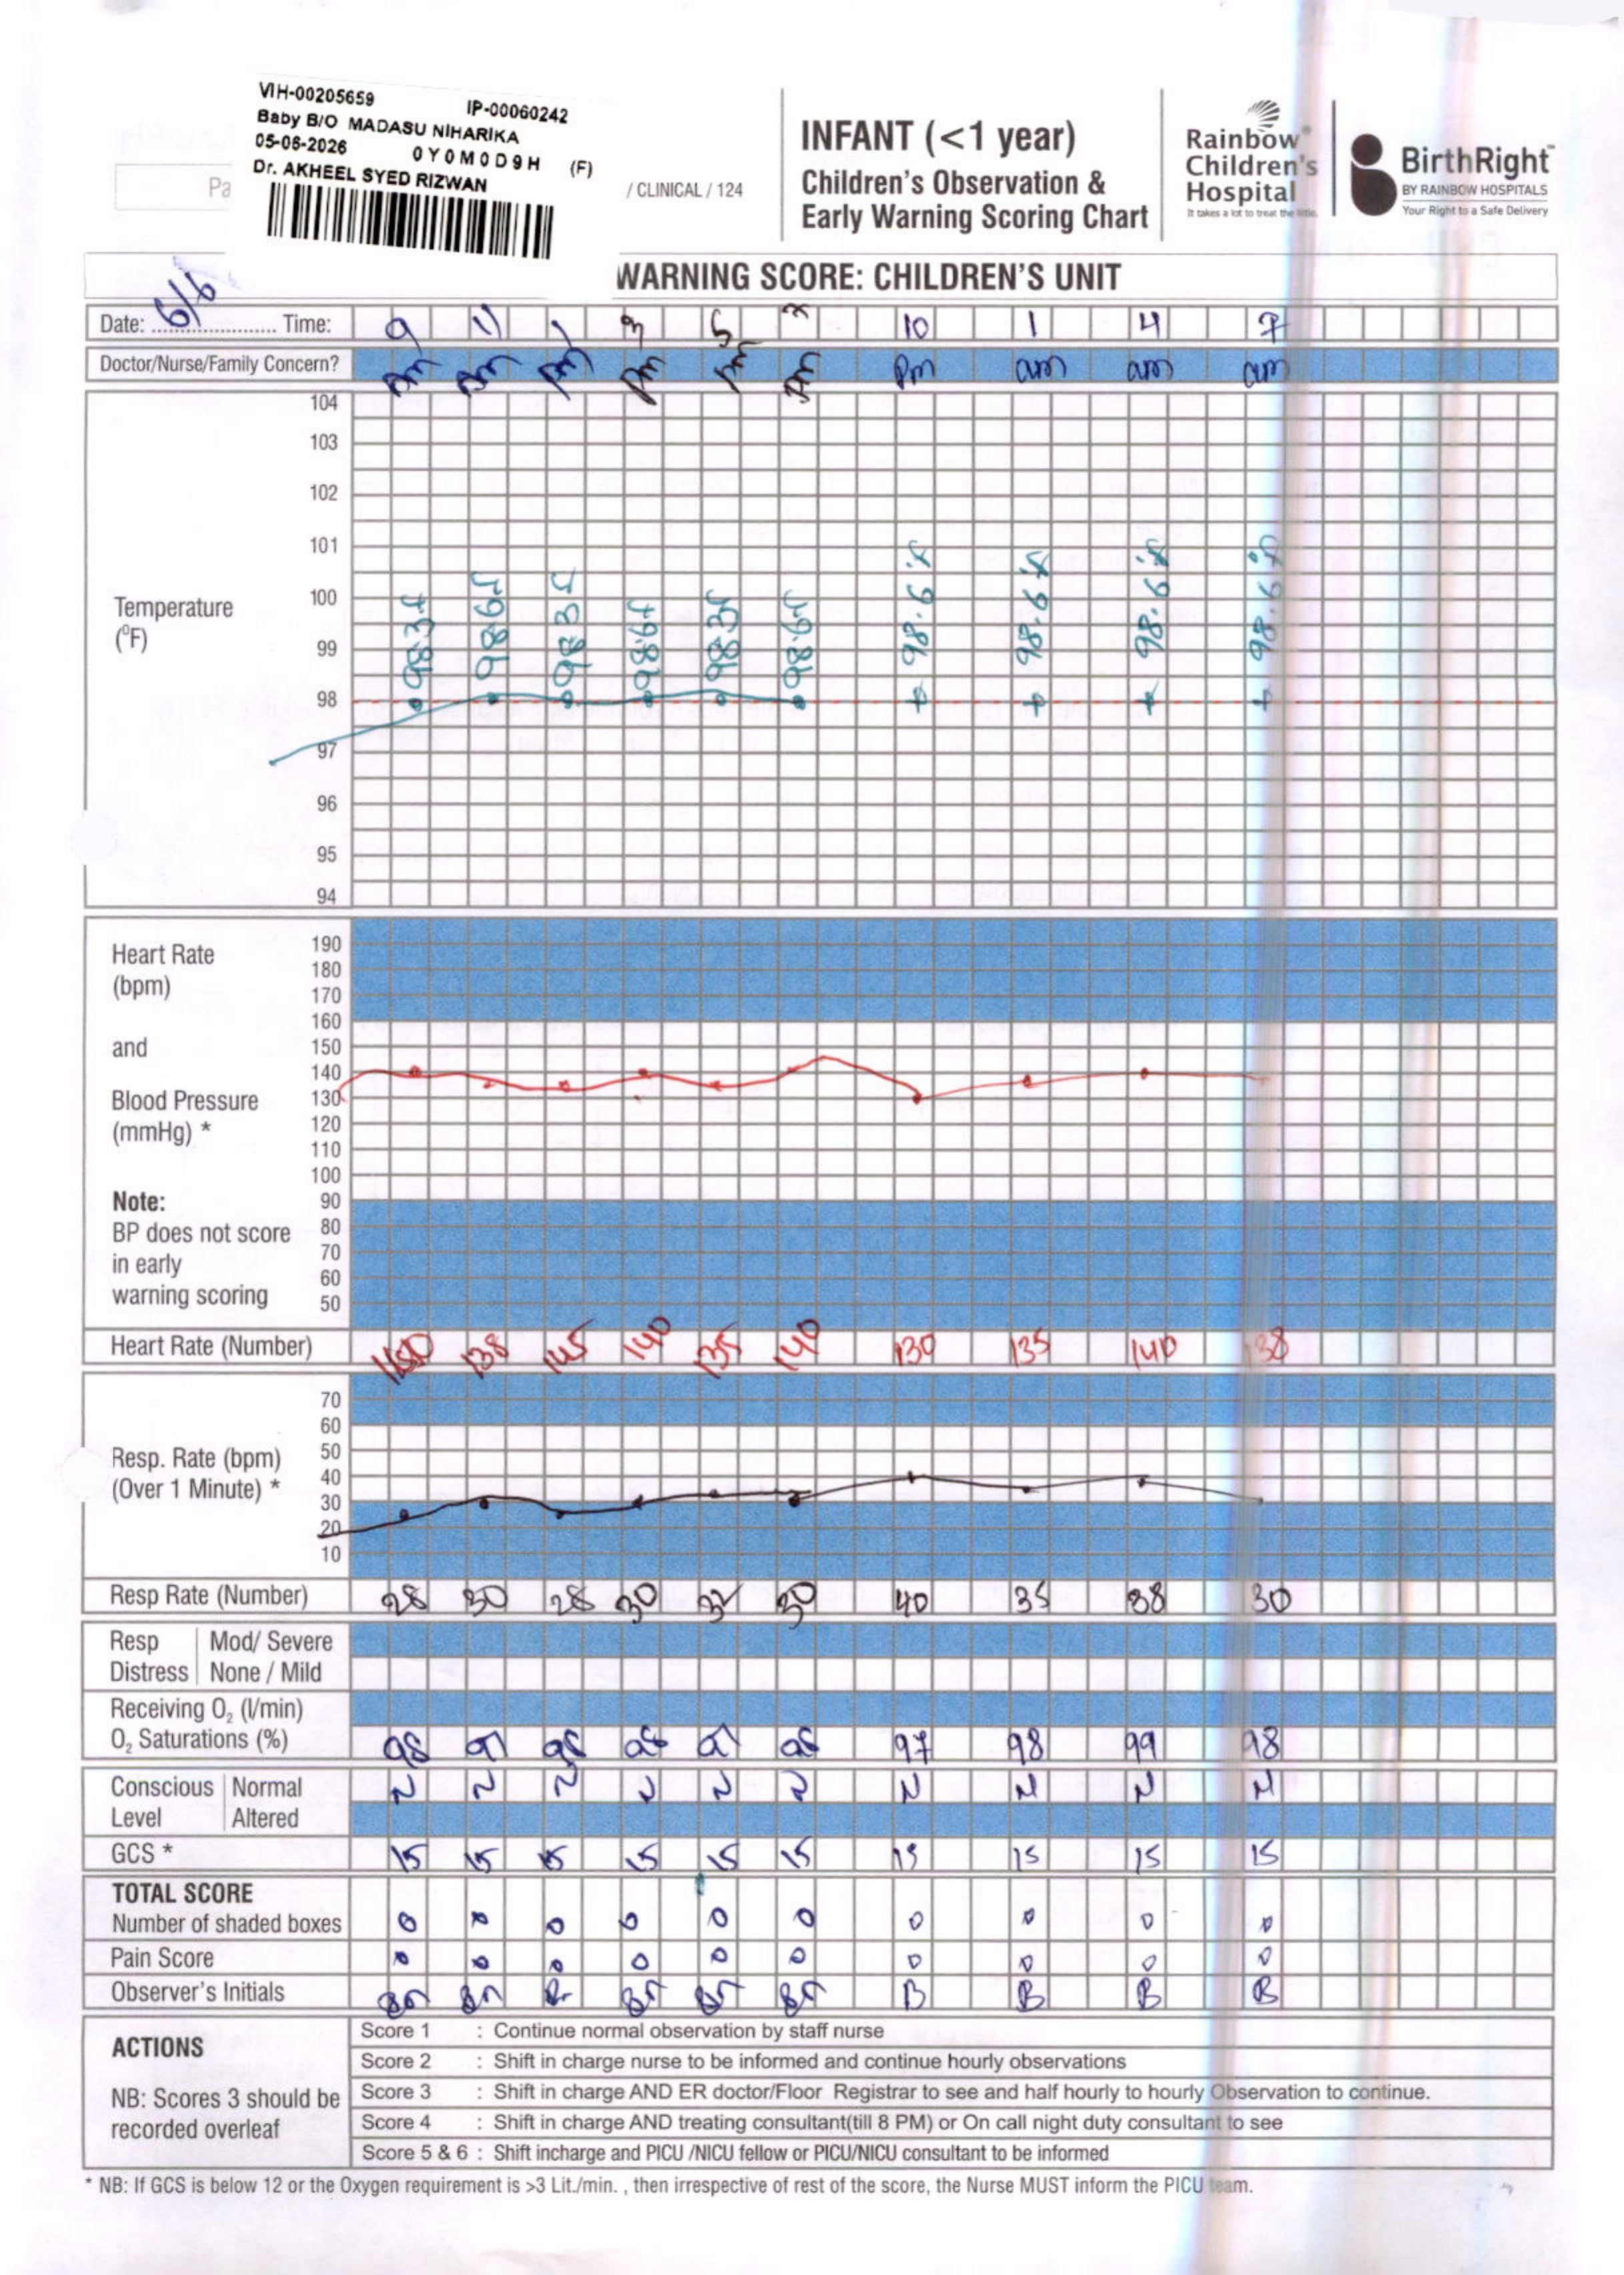 VIH-00205659 IP-00060242
Baby B/O MADASU NIHARIKA
05-06-2026 0Y0M0D9H (F)
Dr. AKHEEL SYED RIZWAN
Pa
/ CLINICAL / 124
INFANT (<1 year)
Children's Observation &
Early Warning Scoring Chart
Rainbow
Children's
Hospital
It takes a lot to treat the little.
BirthRight
BY RAINBOW HOSPITALS
Your Right to a Safe Delivery
WARNING SCORE: CHILDREN'S UNIT
Date: 6/6 Time: 9 11 1 3 5 7 10 1 4 7
Doctor/Nurse/Family Concern? Am Am Pm Pm Pm Pm Pm am am am
104
103
102
101
100
Temperature
(°F)
99
98
97
96
95
94
98.3f 98.6f 98.3f 98.6f 98.3f 98.6f 98.6°f 98.6°f 98.6°f 98.6°f
Heart Rate
(bpm)
and
Blood Pressure
(mmHg) *
Note:
BP does not score
in early
warning scoring
190
180
170
160
150
140
130
120
110
100
90
80
70
60
50
Heart Rate (Number) 138 145 140 135 140 130 135 140 138
Resp. Rate (bpm)
(Over 1 Minute) *
70
60
50
40
30
20
10
Resp Rate (Number) 28 30 28 30 32 30 40 35 38 30
Resp Distress Mod/ Severe
None / Mild
Receiving O2 (l/min)
O2 Saturations (%) 98 97 98 98 97 98 97 98 99 98
Conscious Level Normal N N N N N N N N N N
Altered
GCS * 15 15 15 15 15 15 15 15 15 15
TOTAL SCORE
Number of shaded boxes 0 0 0 0 0 0 0 0 0 0
Pain Score 0 0 0 0 0 0 0 0 0 0
Observer's Initials B B B B
ACTIONS
NB: Scores 3 should be
recorded overleaf
Score 1 : Continue normal observation by staff nurse
Score 2 : Shift in charge nurse to be informed and continue hourly observations
Score 3 : Shift in charge AND ER doctor/Floor Registrar to see and half hourly to hourly Observation to continue.
Score 4 : Shift in charge AND treating consultant(till 8 PM) or On call night duty consultant to see
Score 5 & 6 : Shift incharge and PICU /NICU fellow or PICU/NICU consultant to be informed
* NB: If GCS is below 12 or the Oxygen requirement is >3 Lit./min. , then irrespective of rest of the score, the Nurse MUST inform the PICU team.